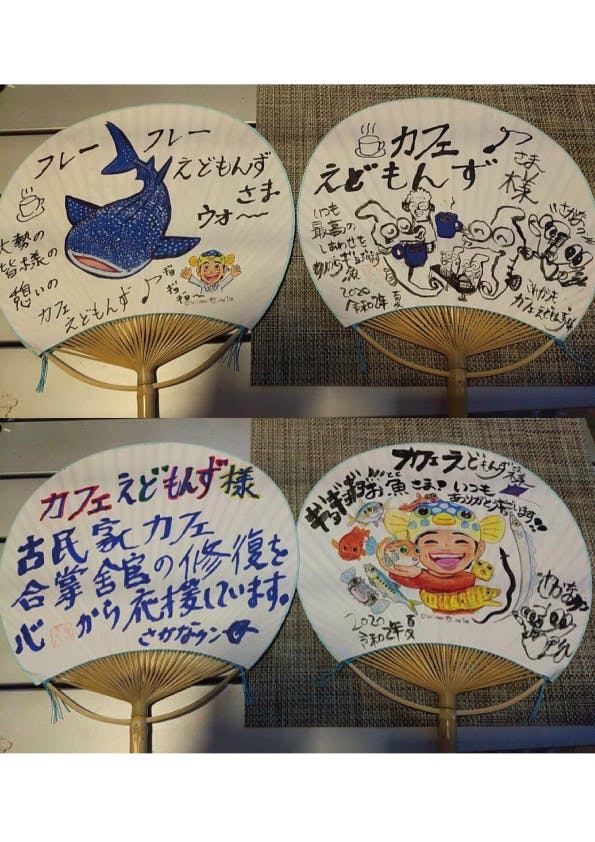 フレー フレー
えどもんず
さま
ウオ〜〜
大勢の
皆様の
憩いの
カフェ
えどもんず♪
ギョ
ギョ
ギョ〜
カフェ♪
えどもんず
さま
様
いつも
最高の
しあわせを
2020
令和2年 夏
さかなクン
カフェえどもんず様
カフェえどもんず様
古民家カフェ
合掌舎官の修復を
心から応援しています。
さかなクン
カフェえどもんず様
ギョギョギョッ
お魚さま♪いつも
ありがとうギョざいます!!
2020
令和2年 夏
さかなクン